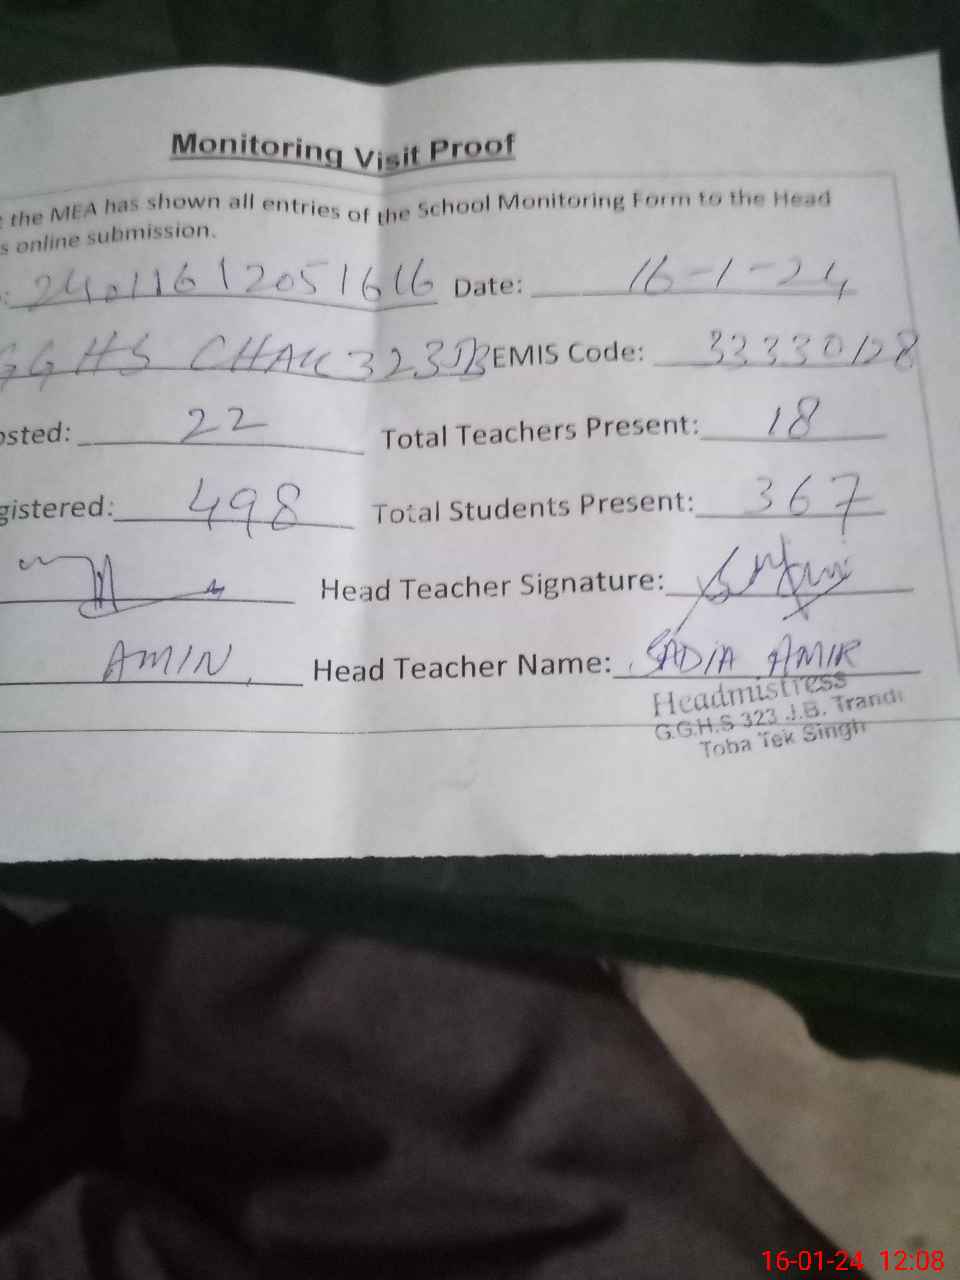 Monitoring Visit Proof
the MEA has shown all entries of the School Monitoring Form to the Head
s online submission.
: 24011612051616 Date: 16-1-24
GGHS CHAK 323JB EMIS Code: 33330128
osted: 22 Total Teachers Present: 18
gistered: 498 Total Students Present: 367
Head Teacher Signature:
AMIN Head Teacher Name: SADIA AMIR
Headmistress
G.G.H.S 323 J.B. Trandi
Toba Tek Singh
16-01-24 12:08